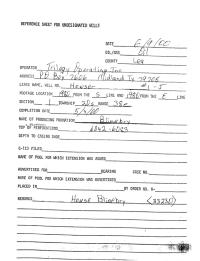 REFERENCE SHEET FOR UNDESIGNATED WELLS
DATE 6/9/00
OIL
COUNTY Lea
OPERATOR Trilogy Operating Inc
ADDRESS P O Box 7606 Midland Tx 79708
LEASE NAME, WELL NO. Houser #1-J
FOOTAGE LOCATION 1980 FROM THE S LINE AND 1980 FROM THE E LINE
SECTION 1 TOWNSHIP 20s RANGE 38e
COMPLETION DATE 5/4/00
NAME OF PRODUCING FORMATION Blinebry
TOP OF PERFORATIONS 5842-6023
DEPTH TO CASING SHOE
C-123 FILED
NAME OF POOL FOR WHICH EXTENSION WAS ASKED
ADVERTISED FOR HEARING CASE NO.
NAME OF POOL FOR WHICH EXTENSION WAS ADVERTISED
PLACED IN BY ORDER NO. R-
REMARKS House Blinebry (33230)